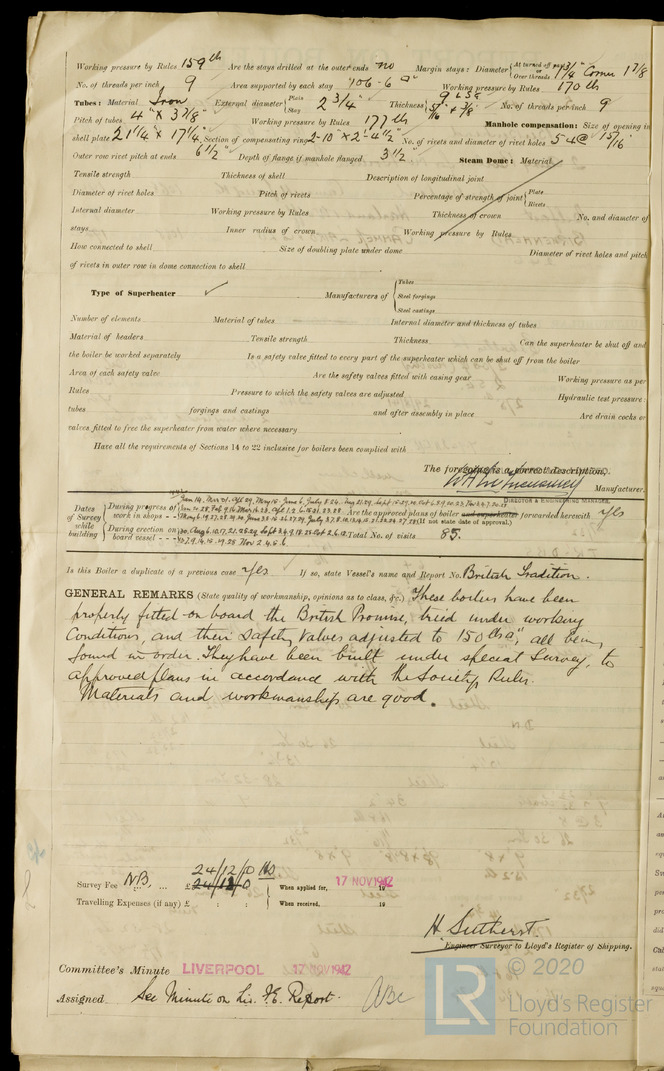 Working pressure by Rules 159 lb Are the stays drilled at the outer ends no Margin stays: Diameter { At turned off part, or Over threads 1 3/4" Corner 1 7/8
No. of threads per inch 9 Area supported by each stay Working pressure by Rules 170 lb
Tubes: Material Iron External diameter { Plain Stay 2 3/4" Thickness { 5/16 + 3/8 No. of threads per inch 9
Pitch of tubes 4" x 3 7/8" Working pressure by Rules 177 lb Manhole compensation: Size of opening in
shell plate 21 1/4" x 17 1/4" Section of compensating ring 2-10" x 2'-4 1/2" No. of rivets and diameter of rivet holes 54 @ 15/16"
Outer row rivet pitch at ends 6 1/2" Depth of flange if manhole flanged 3 1/2" Steam Dome: Material
Tensile strength Thickness of shell Description of longitudinal joint
Diameter of rivet holes Pitch of rivets Percentage of strength of joint { Plate Rivets
Internal diameter Working pressure by Rules Thickness of crown No. and diameter of
stays Inner radius of crown Working pressure by Rules
How connected to shell Size of doubling plate under dome Diameter of rivet holes and pitch
of rivets in outer row in dome connection to shell
Type of Superheater Manufacturers of { Tubes Steel forgings Steel castings
Number of elements Material of tubes Internal diameter and thickness of tubes
Material of headers Tensile strength Thickness Can the superheater be shut off and
the boiler be worked separately Is a safety valve fitted to every part of the superheater which can be shut off from the boiler
Area of each safety valve Are the safety valves fitted with easing gear Working pressure as per
Rules Pressure to which the safety valves are adjusted Hydraulic test pressure:
tubes forgings and castings and after assembly in place Are drain cocks or
valves fitted to free the superheater from water where necessary
Have all the requirements of Sections 14 to 22 inclusive for boilers been complied with
The foregoing is a correct description,
Manufacturer.
DIRECTOR & ENGINEERING MANAGER.
Dates of Survey while building { During progress of work in shops - - Are the approved plans of boiler and superheater forwarded herewith yes
(If not state date of approval.)
During erection on board vessel - - - Total No. of visits 85.
Is this Boiler a duplicate of a previous case yes If so, state Vessel's name and Report No. British Tradition.
GENERAL REMARKS (State quality of workmanship, opinions as to class, &c.) These boilers have been
properly fitted on board the British Promise, tried under working
conditions, and their safety valves adjusted to 150 lbs □", all being
found in order. They have been built under special survey, to
approved plans in accordance with the Society's Rules.
Materials and workmanship are good.
24/12/0
Survey Fee NB. ... £ 24/12/0 { When applied for, 17 NOV 1942 19
Travelling Expenses (if any) £ : : When received, 19
H. Sutherst
Engineer Surveyor to Lloyd's Register of Shipping.
Committee's Minute LIVERPOOL 17 NOV 1942
Assigned See Minute on Liv. F.E. Report.
LR © 2020
Lloyd's Register
Foundation